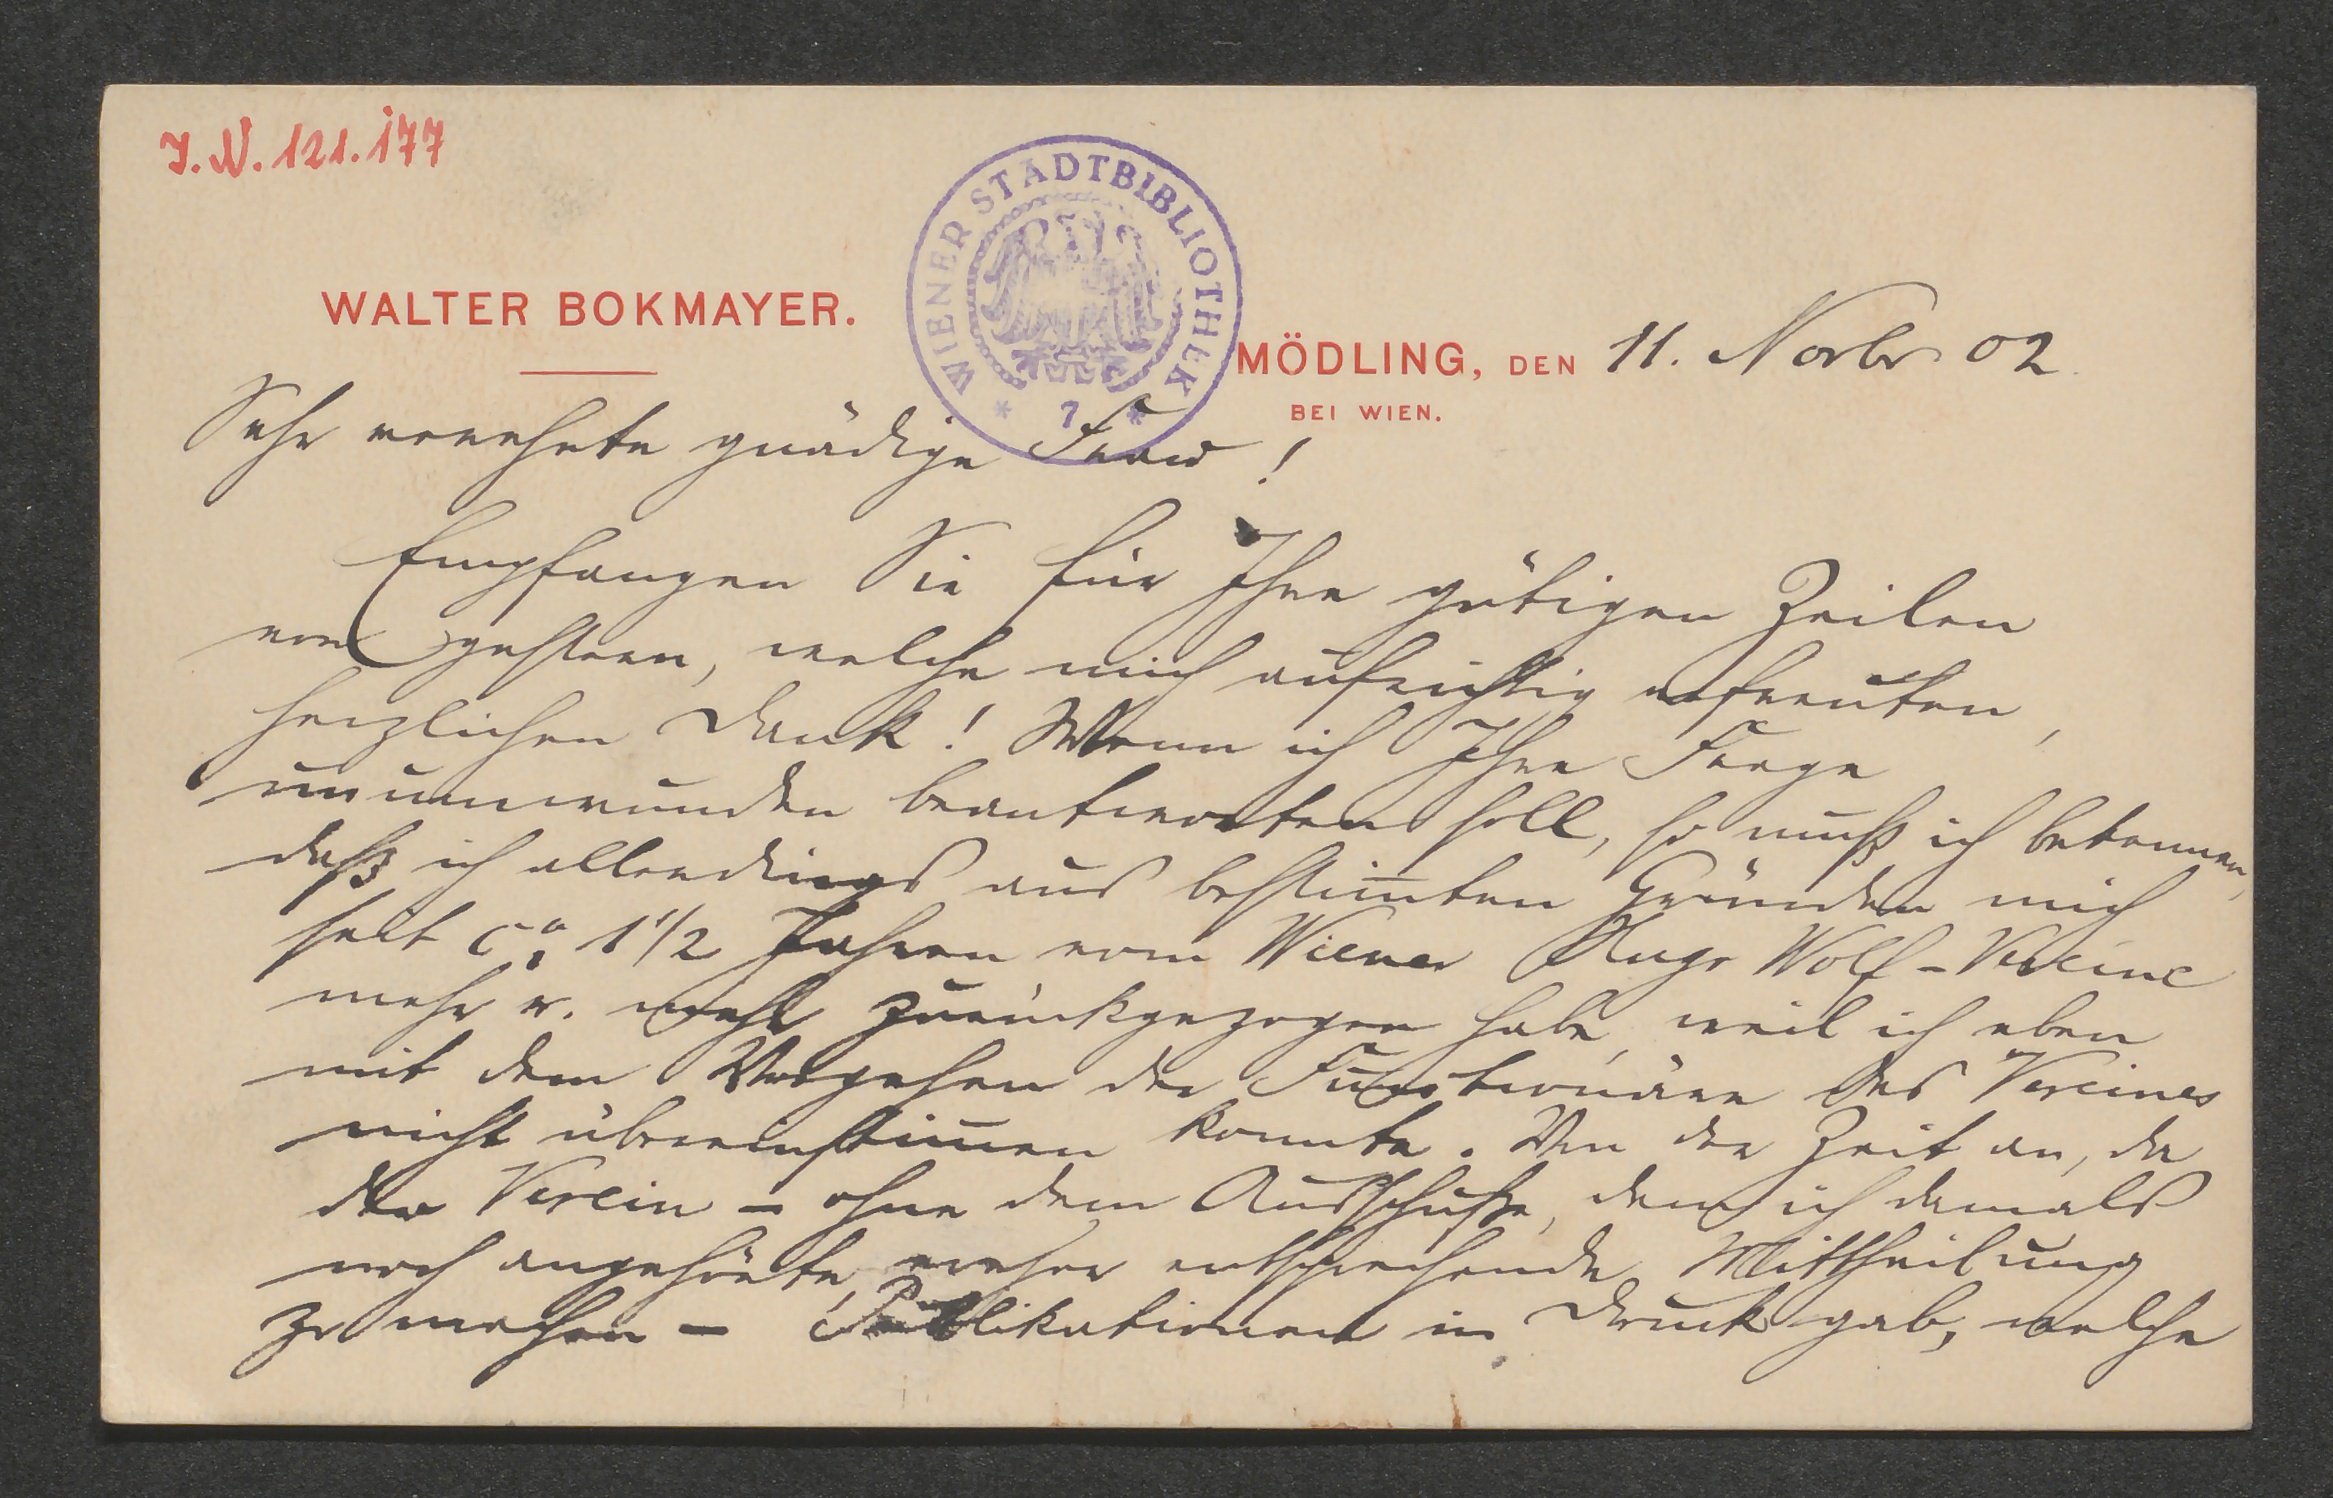 J.N. 121.177
WIENER STADTBIBLIOTHEK
* 7 *
WALTER BOKMAYER.
MÖDLING, DEN 11. Novbr 02.
BEI WIEN.
Sehr verehrte gnädige Frau!
Empfangen Sie für Ihre gütigen Zeilen
von gestern, welche mich aufrichtig erfreuten,
herzlichen Dank! Wenn ich Ihre Frage
unumwunden beantworten soll, so muß ich bekennen,
daß ich allerdings aus bestim̅ten Gründen mich
seit ca 1 1/2 Jahren vom Wiener Hugo Wolf-Vereine
mehr u. mehr zurückgezogen habe, weil ich eben
mit dem Vorgehen der Functionäre des Vereines
nicht übereinstim̅en konnte. Von der Zeit an, da
der Verein – ohne dem Ausschuße, dem ich damals
noch angehörte, vorher entsprechende Mittheilung
zu machen – Publikationen in Druck gab, welche